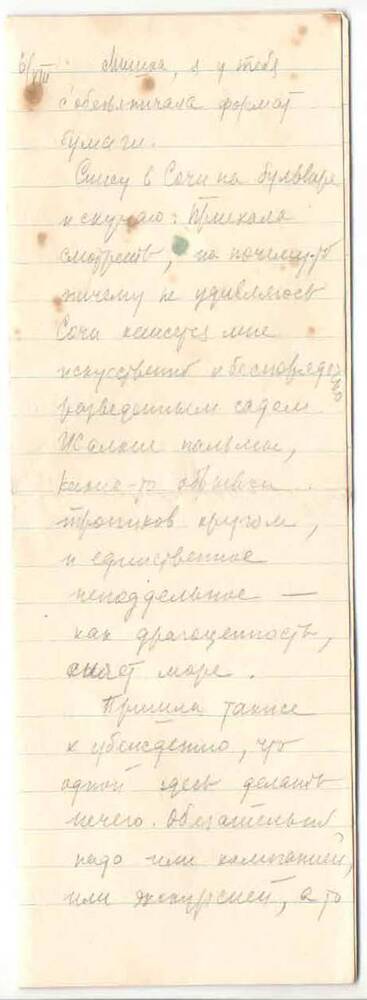 6/VIII Мишка, я у тебя
собезьянничала формат
бумаги.
Сижу в Сочи на бульваре
и скучаю: Приехала
смотреть, но почему-то
ничему не удивляюсь
Сочи кажется мне
искусственно и беспорядочно
разведенным садом
Жалкие пальмы,
какие-то обрывки
тропиков кругом,
и единственное
неподдельное —
как драгоценность,
сияет море.
Пришла также
к убеждению, что
одной здесь делать
нечего. Обязательно
надо или компанией,
или экскурсией, а то